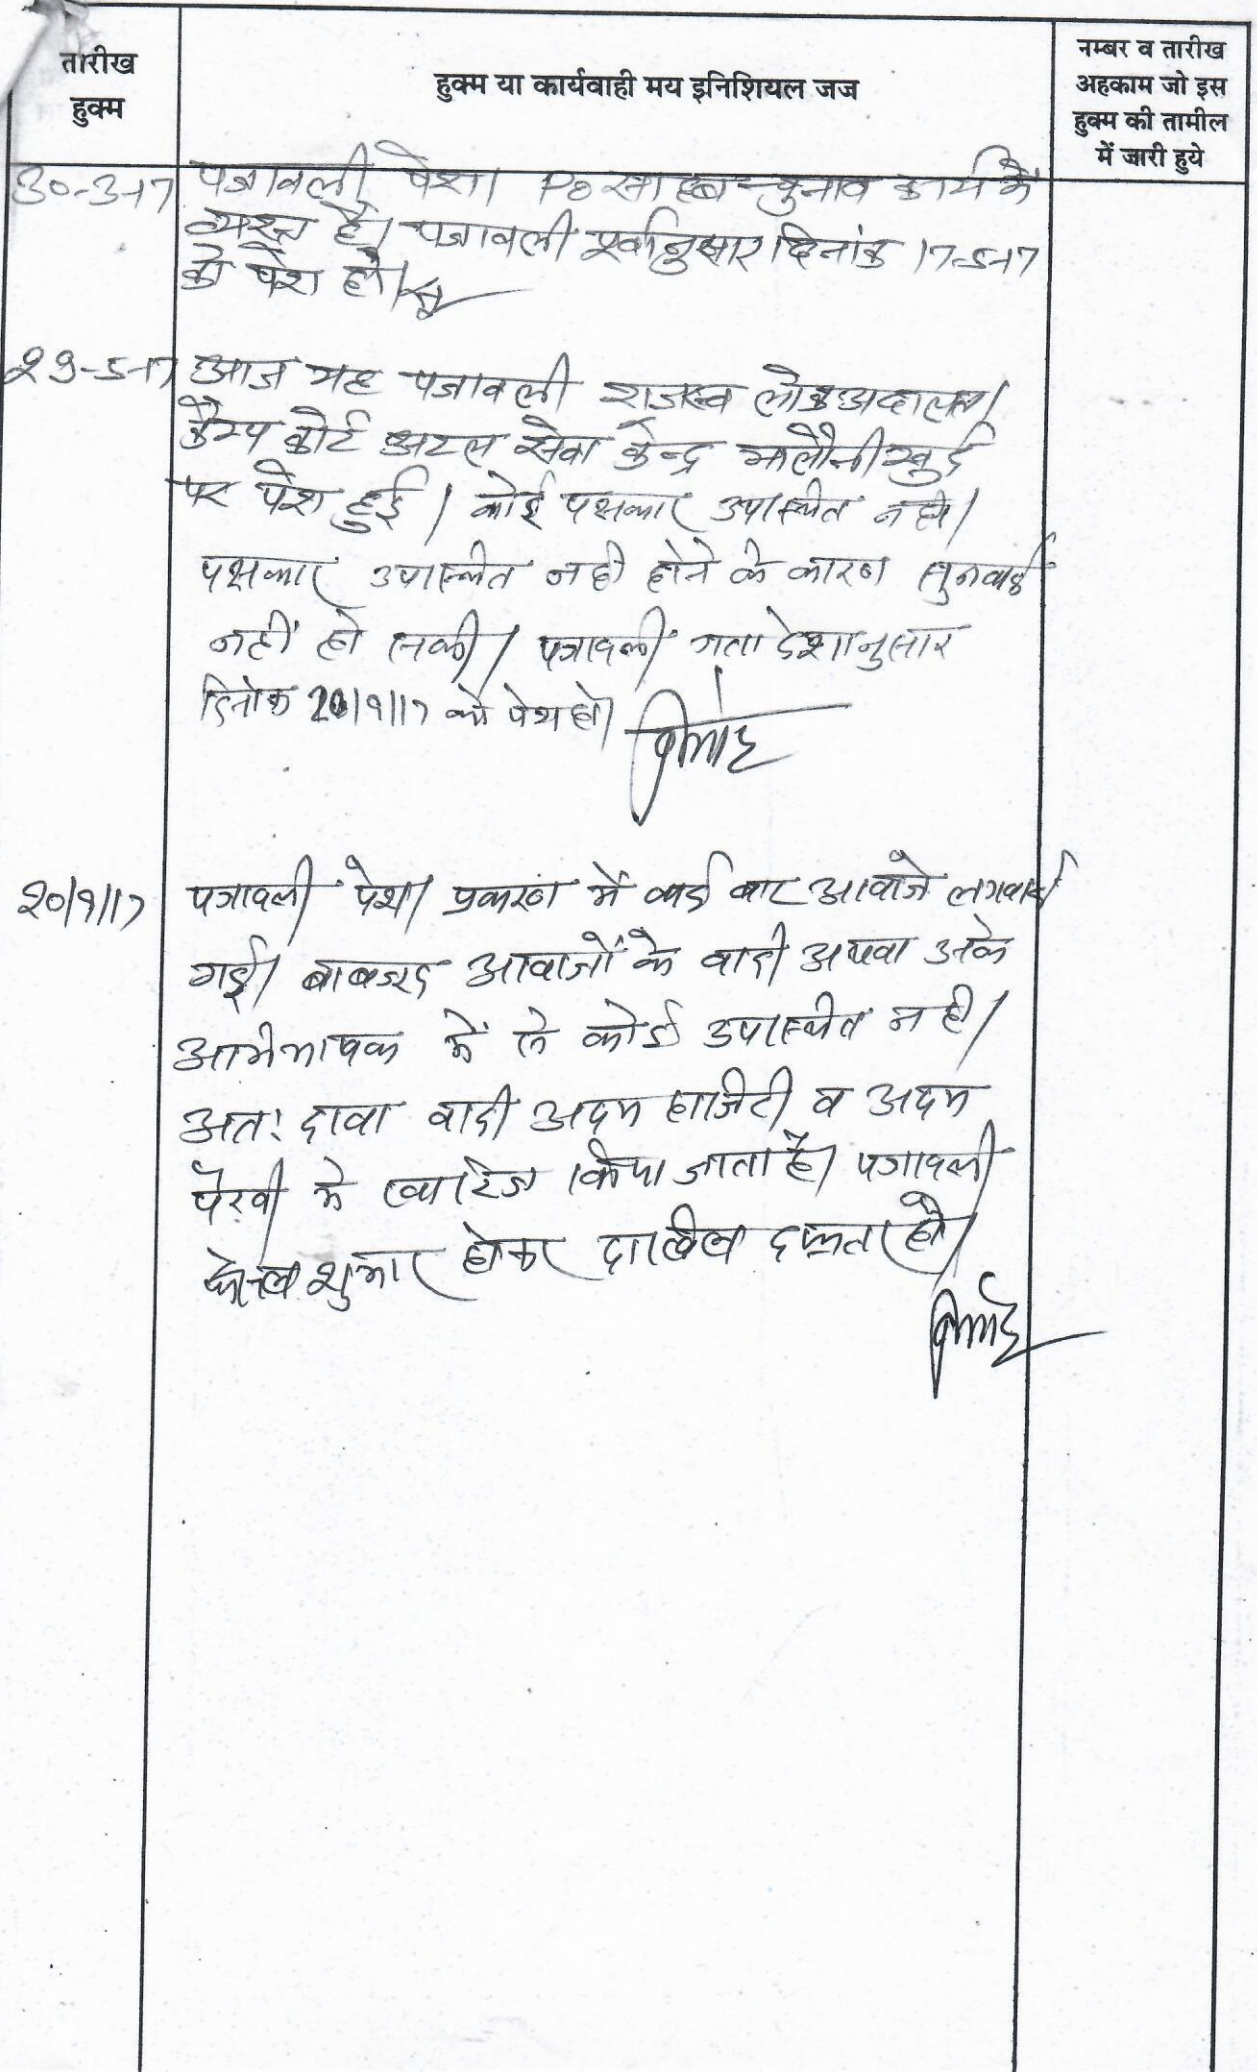 तारीख
हुक्म
हुक्म या कार्यवाही मय इनिशियल जज
नम्बर व तारीख
अहकाम जो इस
हुक्म की तामील
में जारी हुये
30-3-17 पत्रावली पेश। PO साहब चुनाव कार्य में
व्यस्त है। पत्रावली पूर्वानुसार दिनांक 17-5-17
को पेश हो।
29-5-17 आज यह पत्रावली राजस्व लोक अदालत
कैम्प कोर्ट अटल सेवा केन्द्र मालौनी खुर्द
पर पेश हुई। कोई पक्षकार उपस्थित नही।
पक्षकार उपस्थित नही होने के कारण सुनवाई
नहीं हो सकी। पत्रावली गतादेशानुसार
दिनांक 20/9/17 को पेश हो।
20/9/17 पत्रावली पेश। प्रकरण में कई बार आवाजे लगवाई
गई। बावजूद आवाजों के वादी अथवा उनके
अभिभाषक में से कोई उपस्थित नही।
अतः दावा वादी अदम हाजिरी व अदम
पैरवी में खारिज किया जाता है। पत्रावली
फैसल शुमार होकर दाखिल दफ्तर हो।